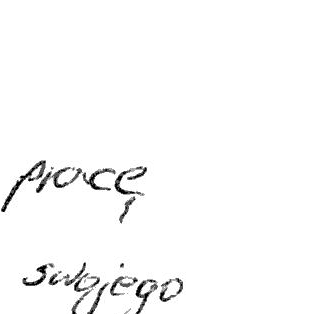 pracę
swojego